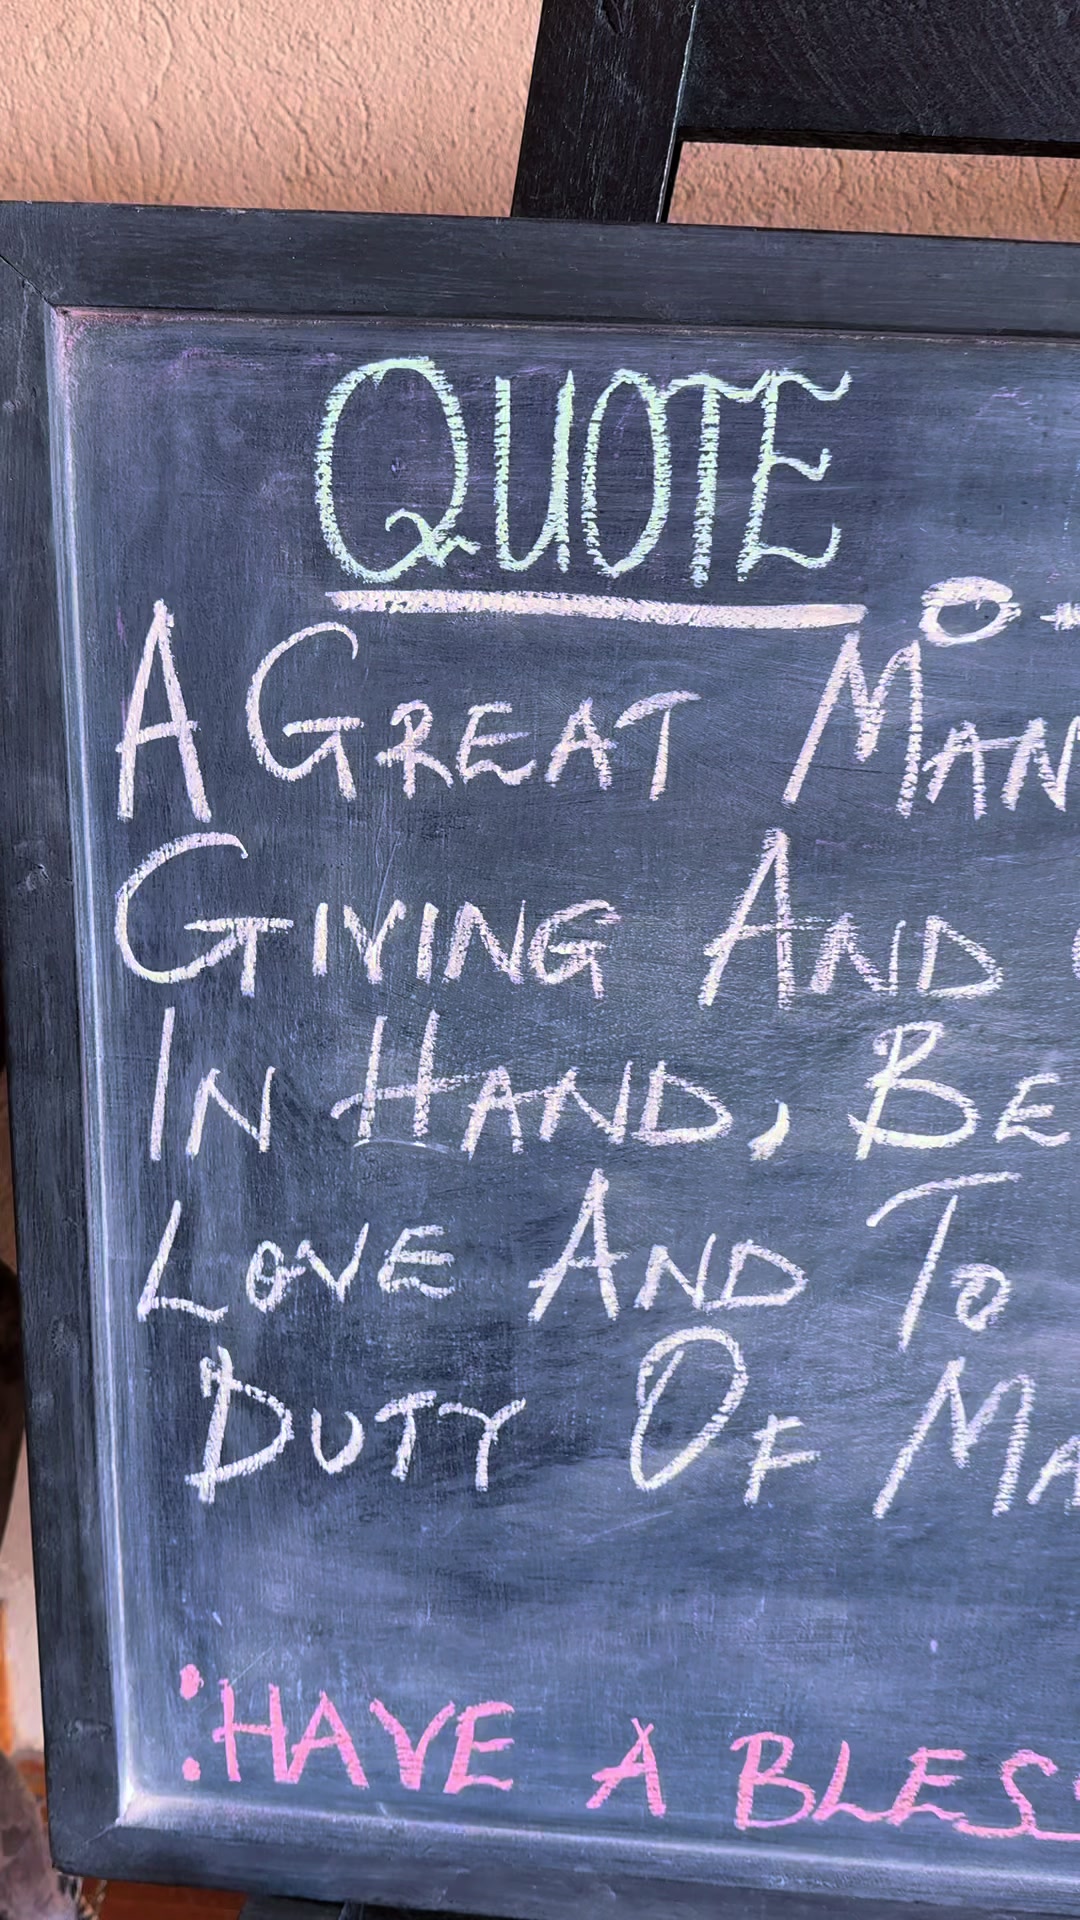 QUOTE
A GREAT MAN
GIVING AND
IN HAND, BE
LOVE AND TO
DUTY OF MA
:HAVE A BLES